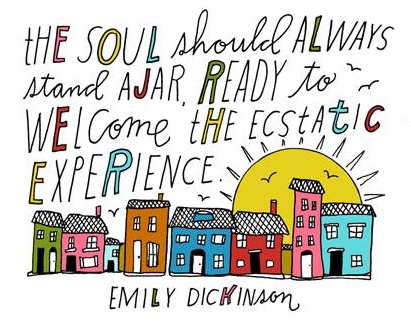 tHE SOUL should ALWAYS
stand AJAR, READY to
WELCome tHE ECStAtiC
EXPERIENCE.
EMILY DICKINSon